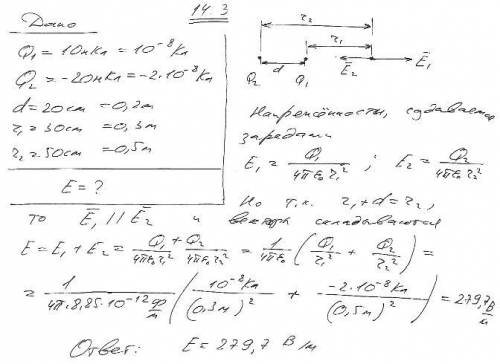 14.3
Дано
Q₁ = 10нКл = 10⁻⁸Кл
Q₂ = -20нКл = -2·10⁻⁸Кл
d = 20см = 0,2м
r₁ = 30см = 0,3м
r₂ = 50см = 0,5м
E = ?
r₂
r₁
d
Q₂ Q₁ E̅₂ E̅₁
Напряжённости, создаваемые
зарядами
E₁ = Q₁/4πε₀r₁² ; E₂ = Q₂/4πε₀r₂²
Но т.к. r₁+d=r₂,
то E̅₁ // E̅₂ и вектора складываются
E = E₁ + E₂ = Q₁/4πε₀r₁² + Q₂/4πε₀r₂² = 1/4πε₀ (Q₁/r₁² + Q₂/r₂²) =
= 1/4π·8,85·10⁻¹² ф/м (10⁻⁸Кл/(0,3м)² + -2·10⁻⁸Кл/(0,5м)²) = 279,7 В/м
Ответ: E = 279,7 В/м